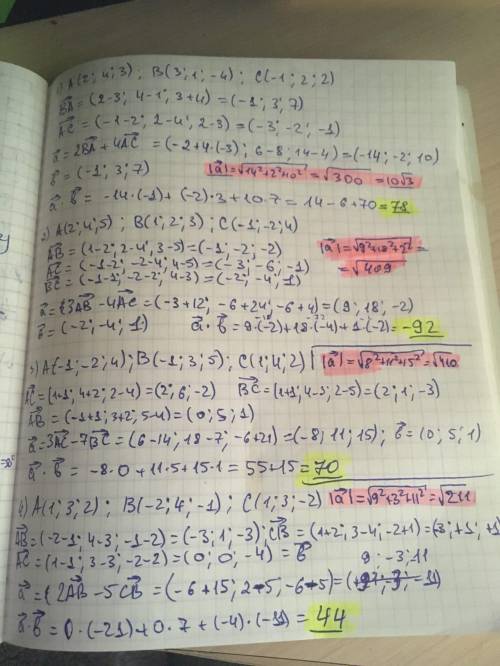 1) A(2; 4; 3) ; B(3; 1; -4) ; C(-1; 2; 2)
BA = (2-3; 4-1; 3+4) = (-1; 3; 7)
AC = (-1-2; 2-4; 2-3) = (-3; -2; -1)
a = 2BA + 4AC = (-2+4·(-3); 6-8; 14-4) = (-14; -2; 10)
b = (-1; 3; 7) |a| = √14²+2²+10² = √300 = 10√3
a · b = -14·(-1) + (-2)·3 + 10·7 = 14-6+70 = 78
2) A(2; 4; 5) ; B(1; 2; 3) ; C(-1; -2; 4)
AB = (1-2; 2-4; 3-5) = (-1; -2; -2) |a| =
AC = (-1-2; -2-4; 4-5) = (-3; -6; -1) = √409
BC = (-1-1; -2-2; 4-3) = (-2; -4; 1)
a = {3AB - 4AC = (-3+12; -6+24; -6+4) = (9; 18; -2)
b = (-2; -4; 1) a · b = 9·(-2) + 18·(-4) + 1·(-2) = -92
3) A(-1; -2; 4) ; B(-1; 3; 5) ; C(1; 4; 2) |a| = √8²+11²+15² = √410
AC = (1+1; 4+2; 2-4) = (2; 6; -2) BC = (1+1; 4-3; 2-5) = (2; 1; -3)
AB = (-1+1; 3+2; 5-4) = (0; 5; 1)
a = 3AC - 7BC = (6-14; 18-7; -6+21) = (-8; 11; 15) ; b = (0; 5; 1)
a · b = -8·0 + 11·5 + 15·1 = 55+15 = 70
4) A(1; 3; 2) ; B(-2; 4; -1) ; C(1; 3; -2) |a| = √9²+3²+11² = √211
AB = (-2-1; 4-3; -1-2) = (-3; 1; -3) ; CB = (1+2; 3-4; -2+1) = (3; +1; +1)
AC = (1-1; 3-3; -2-2) = (0; 0; -4) = b 9; -3; 11
a = {2AB - 5CB = (-6+15; 2-5; -6-5) =
a · b = 0·(-21) + 0·7 + (-4)·(-11) = 44